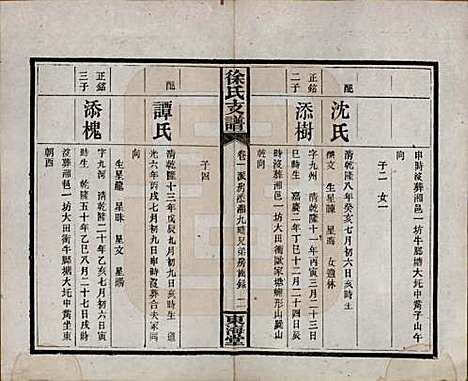 申時沒葬湘邑一坊牛膓塘大田中艮子山午
向
子二 女一
配
沈氏
清乾隆八年癸亥七月初六日亥時生
撰文 生星 星 女適休
正銘
二子
添樹
字九州 清乾隆十一年丙寅三月二十三日
巳時生 嘉慶二年丁巳十二月二十四日
時沒葬湘邑一坊大田衝歐家塘 形山 山
乾向
徐氏支譜
卷一派 房松湘九 兄弟房齒錄
東海堂
子四
配
譚氏
清乾隆十三年戊辰九月初九日亥時生 道
光六年丙戌七月初九日申時沒葬合夫冢兩
向
生星龍 星 星文 星
正銘
三子
添槐
字九河 清乾隆二十年乙亥七月初六日
時生 乾隆五十年乙巳八月二十七日戌時
沒葬湘邑一坊大田衝牛膓塘大坵中 坐東
朝西